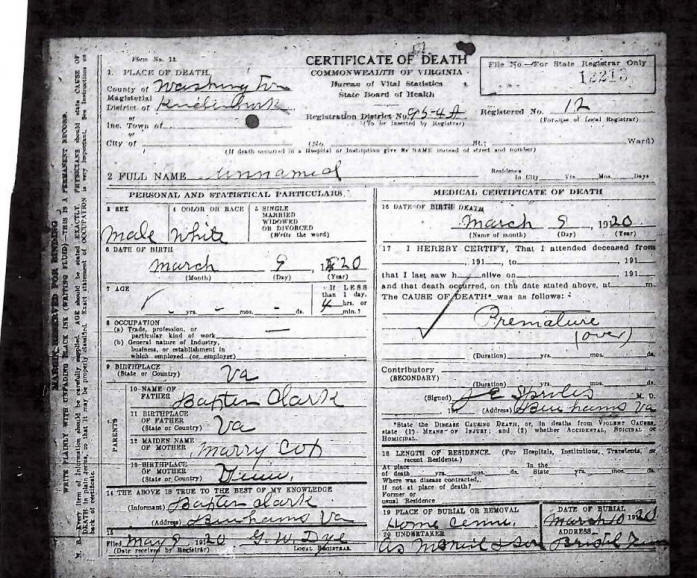 Form No. 12
CERTIFICATE OF DEATH
COMMONWEALTH OF VIRGINIA
Bureau of Vital Statistics
State Board of Health
File No.—For State Registrar Only
12213
1. PLACE OF DEATH
County of Washington
Magisterial
District of
or
Inc. Town of
or
City of
Registration District No. 95-4A
(To be inserted by Registrar)
Registered No. 12
(For use of Local Registrar)
(No. St.; Ward)
(If death occurred in a Hospital or Institution give its NAME instead of street and number)
2 FULL NAME unnamed
Residence
In City Yrs. Mos. Days
PERSONAL AND STATISTICAL PARTICULARS
3 SEX
male
4 COLOR OR RACE
White
5 SINGLE
MARRIED
WIDOWED
OR DIVORCED
(Write the word)
6 DATE OF BIRTH
March 9 1920
(Month) (Day) (Year)
7 AGE
yrs. mos. ds.
If LESS
than 1 day,
4 hrs. or
min.?
8 OCCUPATION
(a) Trade, profession, or
particular kind of work
(b) General nature of Industry,
business, or establishment in
which employed (or employer)
9 BIRTHPLACE
(State or Country) Va
PARENTS
10 NAME OF
FATHER Baxter Clark
11 BIRTHPLACE
OF FATHER
(State or Country) Va
12 MAIDEN NAME
OF MOTHER Marry Cox
13 BIRTHPLACE
OF MOTHER
(State or Country) Tenn.
14 THE ABOVE IS TRUE TO THE BEST OF MY KNOWLEDGE
(Informant) Baxter Clark
(Address) Benhams Va
15
Filed May 9 1920 G. W. Dye
(Date received by Registrar) LOCAL REGISTRAR
MEDICAL CERTIFICATE OF DEATH
16 DATE OF BIRTH DEATH
March 9, 1920
(Name of month) (Day) (Year)
17 I HEREBY CERTIFY, That I attended deceased from
191 , to 191
that I last saw h alive on 191
and that death occurred, on the date stated above, at m.
The CAUSE OF DEATH* was as follows:
Premature
(over)
(Duration) yrs. mos. ds.
Contributory
(SECONDARY)
(Duration) yrs. mos. ds.
(Signed) M. D.
(Address) Benhams Va
*State the DISEASE CAUSING DEATH, or, in deaths from VIOLENT CAUSES,
state (1) MEANS OF INJURY; and (2) whether ACCIDENTAL, SUICIDAL or
HOMICIDAL.
18 LENGTH OF RESIDENCE (For Hospitals, Institutions, Transients, or
recent Residents.)
At place In the
of death yrs. mos. ds. State yrs. mos. ds.
Where was disease contracted,
if not at place of death?
Former or
usual Residence
19 PLACE OF BURIAL OR REMOVAL
Home Cem.
DATE OF BURIAL
March 10 1920
20 UNDERTAKER
ADDRESS
Bristol Tenn
MARGIN RESERVED FOR BINDING
WRITE PLAINLY WITH UNFADING BLACK INK (WRITING FLUID)—THIS IS A PERMANENT RECORD.
N. B.—Every item of information should be carefully supplied. AGE should be stated EXACTLY. PHYSICIANS should state CAUSE OF
DEATH in plain terms, so that it may be properly classified. Exact statement of OCCUPATION is very important. See instructions on
back of certificate.